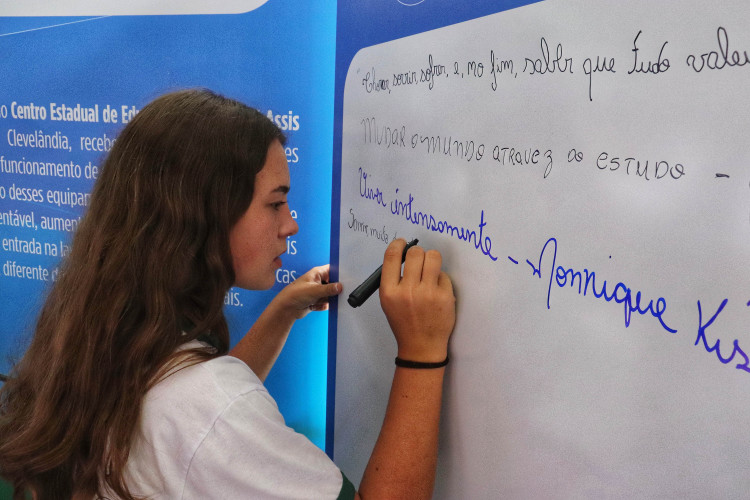 o Centro Estadual de Assis
Clevelândia, receb es
funcionamento de
o desses equipa
entável, aumen e
entrada na la
diferente d cas
ais.
"Chorar, sorrir, sofrer, e, no fim, saber que tudo valeu
MUDAR O MUNDO ATRAVEZ DO ESTUDO -
Viver intensamente - Monnique Kis